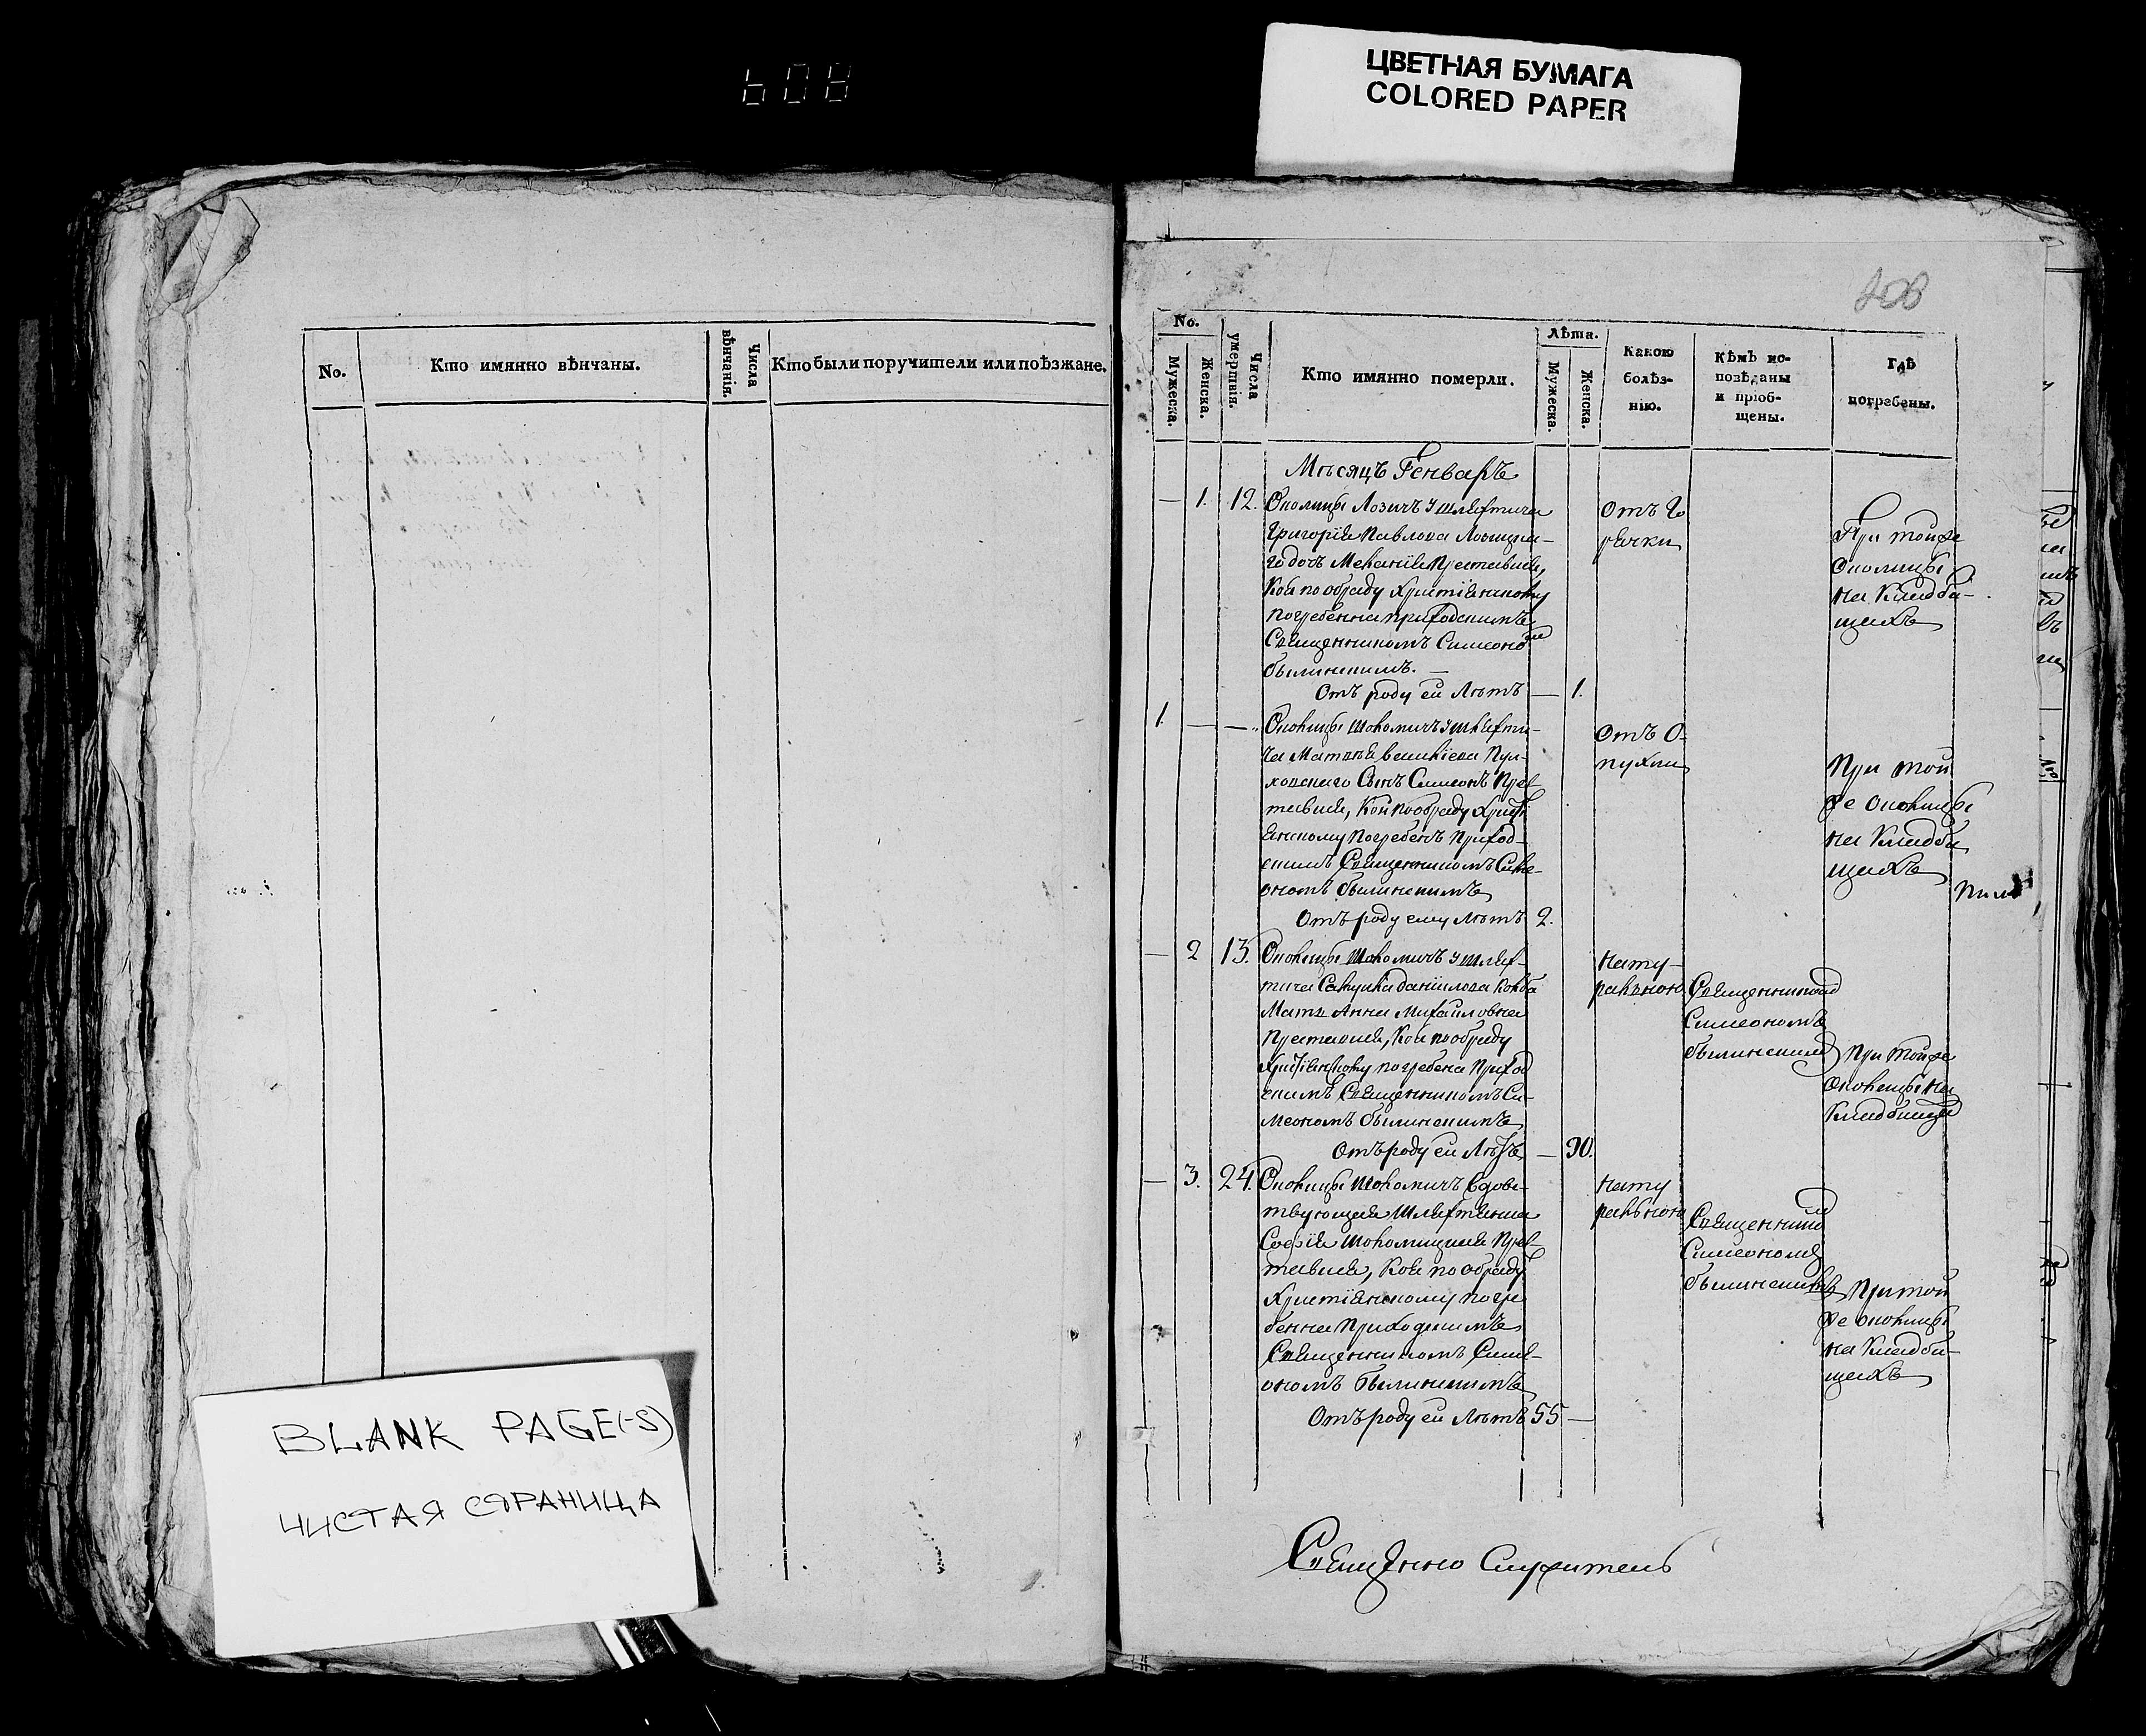 ЦВЕТНАЯ БУМАГА
COLORED PAPER
408
No.
Кто имянно вѣнчаны.
Числа вѣнчанія.
Кто были поручители или поѣзжане.
BLANK PAGE(-S)
ЧИСТАЯ СТРАНИЦА
No.
Мужеска.
Женска.
Числа умертвія.
Кто имянно померли.
Лѣта.
Мужеска.
Женска.
Какою болѣз-
нію.
Кѣмъ ис-
повѣданы
и пріоб-
щены.
Гдѣ
погребены.
Мѣсяцъ Генварь
— 1. 12.
Околицы Лозичъ у шляхтича
Григорія Павлова
дочь Меланія Преставися,
Коя по обряду Христіянскому
погребенна приходскимъ
Священникомъ Симеономъ
былинскимъ. —
Отъ роду ей Лѣтъ — 1.
Отъ Го
рячки
При тойже
Околицы
на Кладби-
щахъ
1. — —
Околицы Шоломичъ у шляхти-
ча Матвѣя
Сынъ Симеонъ Прес
тавися, Кой по обряду Христі
янскому Погребенъ Приход-
скимъ Священникомъ Симе-
ономъ былинскимъ
Отъ роду ему Лѣтъ 2.
Отъ О-
пухли
При той
же Околицы
на Кладби
щахъ
— 2 13.
Околицы Шоломичъ у шлях-
тича Данилова
Мать Анна Михайловна
Преставися, Коя по обряду
Христіянскому погребена Приход
скимъ Священникомъ Си-
меономъ былинскимъ
Отъ роду ей Лѣтъ — 90.
Нату-
ральною
Священникомъ
Симеономъ
былинскимъ
При тойже
околицы на
Кладбищѣ
— 3. 24.
Околицы Шоломичъ Вдовс-
твующая Шляхтянка
Софія Шоломицкая Прес-
тавися, Коя по обряду
Христіянскому погре
бенна Приходскимъ
Священникомъ Симе-
ономъ былинскимъ
Отъ роду ей Лѣтъ 55 —
Нату
ральною
Священникомъ
Симеономъ
былинскимъ
При той
же околицы
на Кладби-
щахъ
Священно Служитель